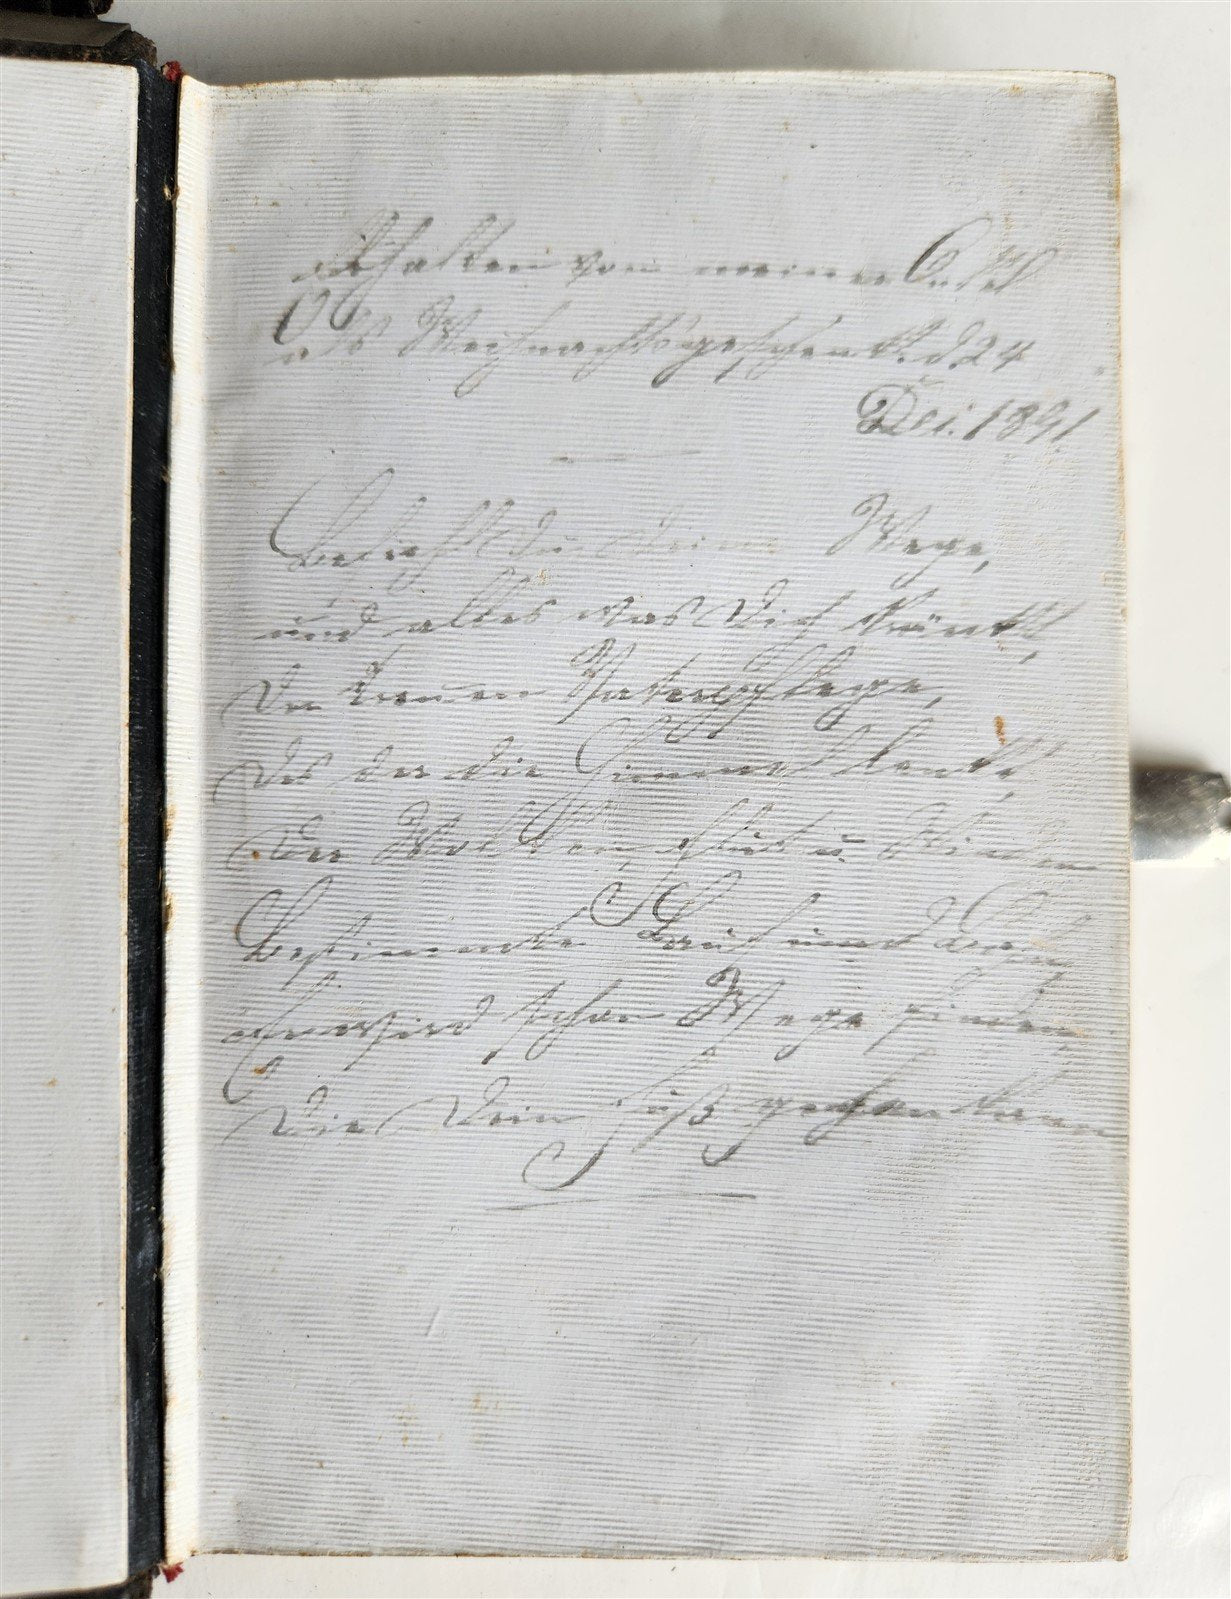 Erhalten von meinem Onkel
als Weihnachtsgeschenk. d. 24
Dez. 1891
Befiehl du deine Wege,
und alles was dich kränkt,
der treuen Vaterpflege,
des der die Himmel lenkt
der Wolken, Luft u. Winden
Bestimmte Lauf und Bahn
Er wird schon Wege finden
die dein Fuß gehen kann